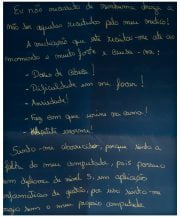 Eu não necessito de nenhuma droga a
não ser aquelas receitadas pelo meu médico!
A medicação que até receitou-me até ao
momento é muito forte e causa-me:
- Dores de Cabeça!
- Dificuldade em me focar!
- Ansiedade!
- Faz com que urine na cama!
- Apetite enorme!
Sinto-me obsoleto, porque sinto a
falta do meu computador, pois possuo
um diploma de nível 5, em aplicações
informáticas de gestão, por isso sinto-me
mais sem o meu próprio computador